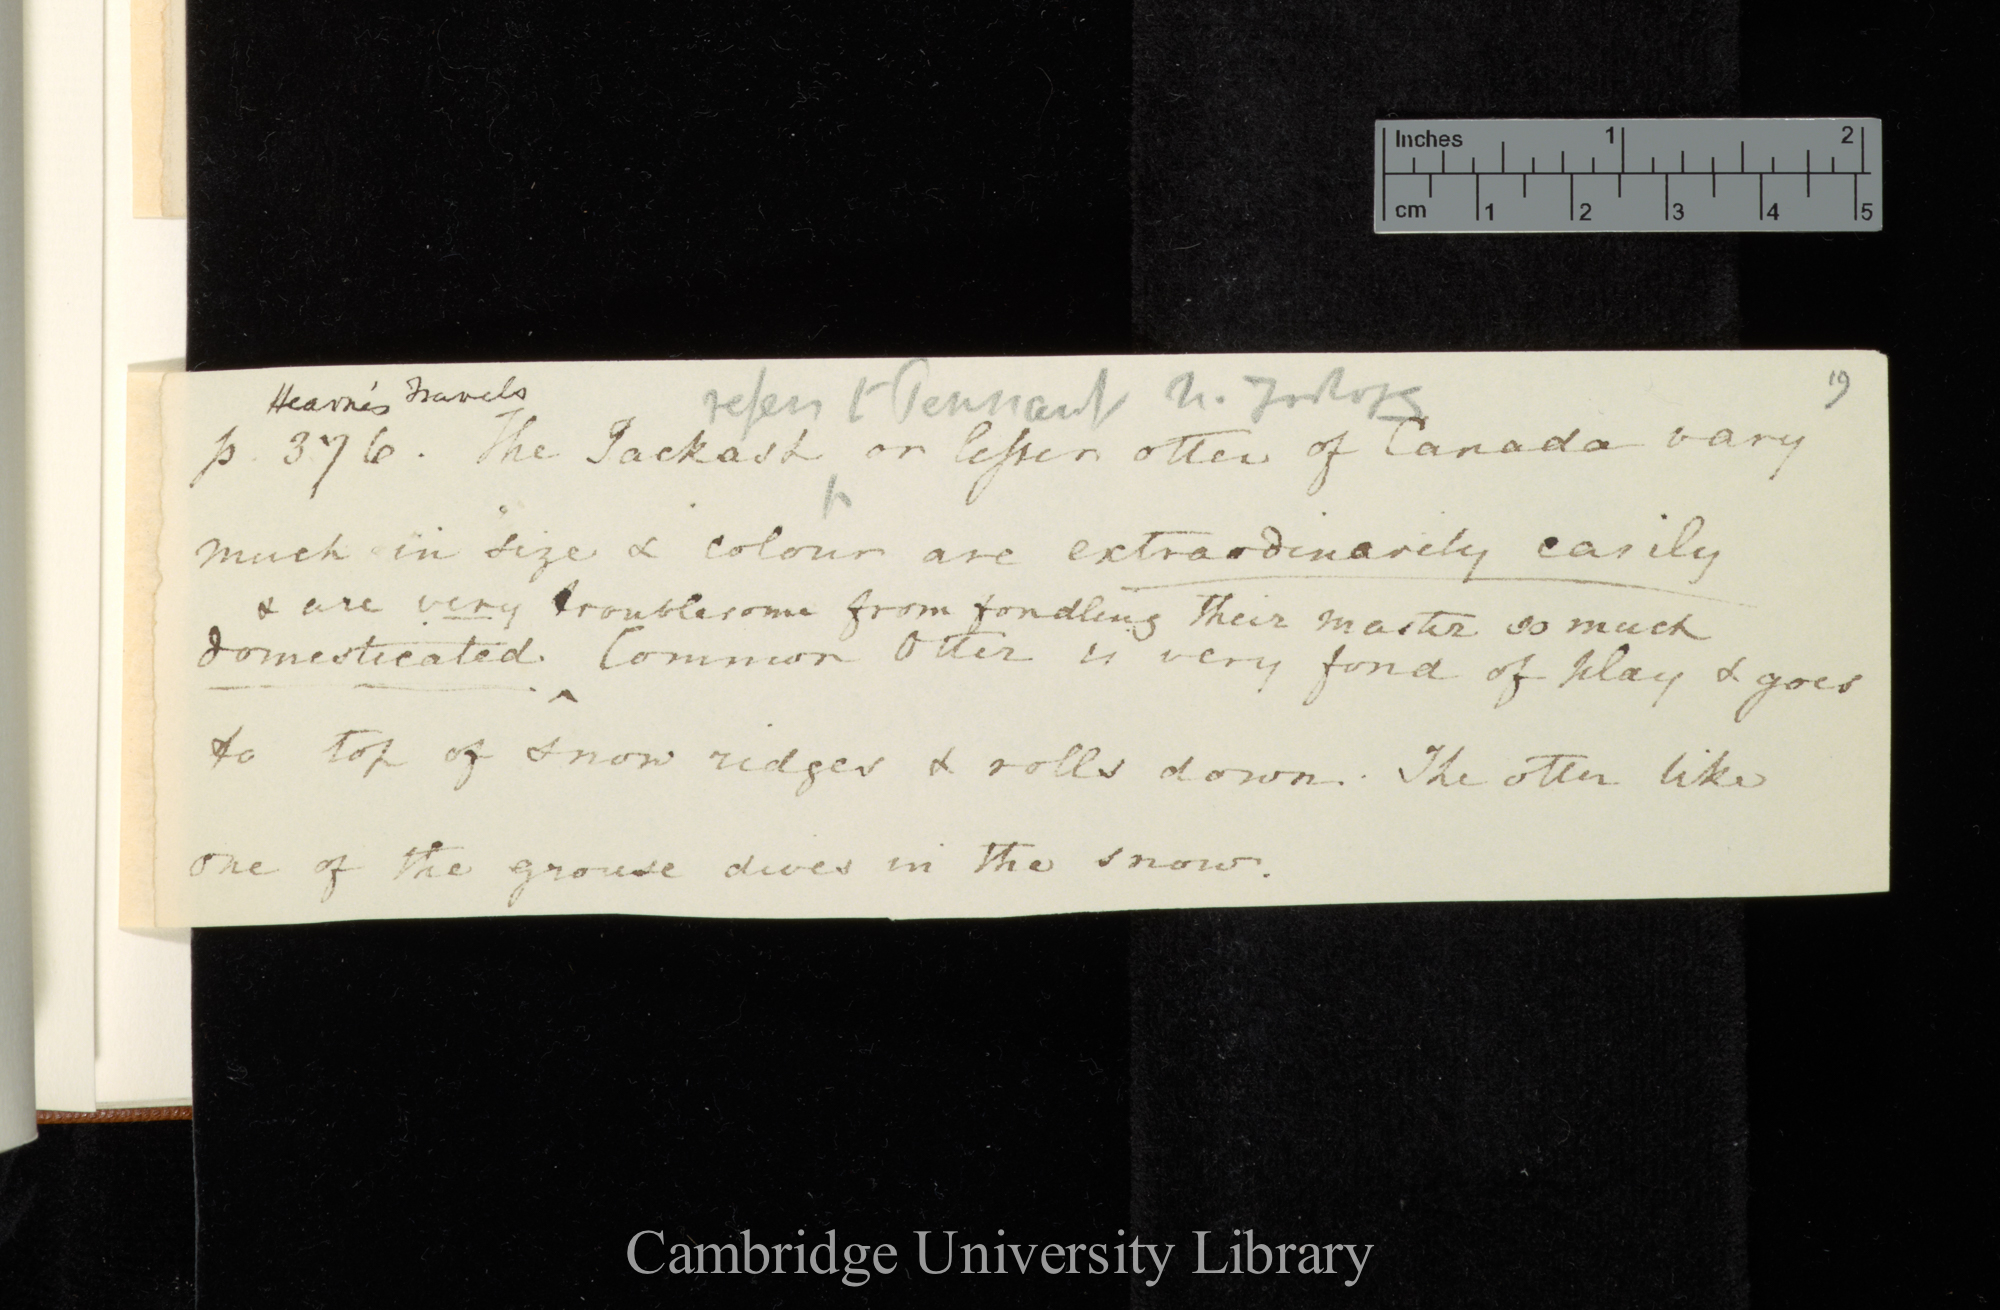 Inches 1 2
cm 1 2 3 4 5
19
Hearne's Travels
refers to Pennant N. Zoology
p. 376. The Jackash or lesser otter of Canada vary
much in size & colour are extraordinarily easily
& are very troublesome from fondling their master so much
domesticated. Common Otter is very fond of play & goes
^
to top of snow ridges & rolls down. The otter like
one of the grouse dives in the snow.
Cambridge University Library